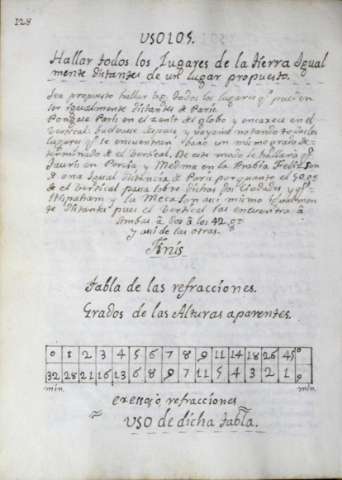 128
USO LOS.
Hallar todos los Lugares de la tierra Igual
mente distantes de un lugar propuesto.
Sea propuesto hallar todos los lugares q.e
son igualmente distantes de Paris
Pongase Paris en el zenit del globo y en el
Vertical notando todos los
lugares q.e se encuentran bajo un mismo grado de
terminado de el Vertical. De este modo se hallara q.e
Tauris en Persia y Medina en la Arabia Felix son
de una Igual distancia de Paris porquanto el 50
de el Vertical passa sobre dichas dos Ciudades, y q.e
Hispaham y la Meca son asi mismo igualmen
te distantes pues el Vertical las encuentra à
ambas à dos à los 42
y asi de las otras.
Finis
Tabla de las refracciones.
Grados de las Alturas aparentes.
0 1 2 3 4 5 6 7 8 9 11 14 18 26 45
32 28 21 16 13 6 8 9 7 11 5 4 3 2 1
min. min.
refracciones
USO de dicha tabla.